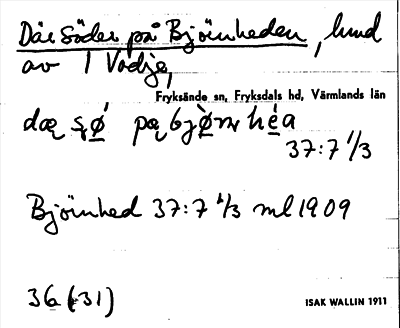 Där Söder på Björnheden, lund
av 1 Vadje,
Fryksände sn, Fryksdals hd, Värmlands län
37:7 1/3
Björnhed 37:7 1/3 ml 1909
36 (31)
ISAK WALLIN 1911